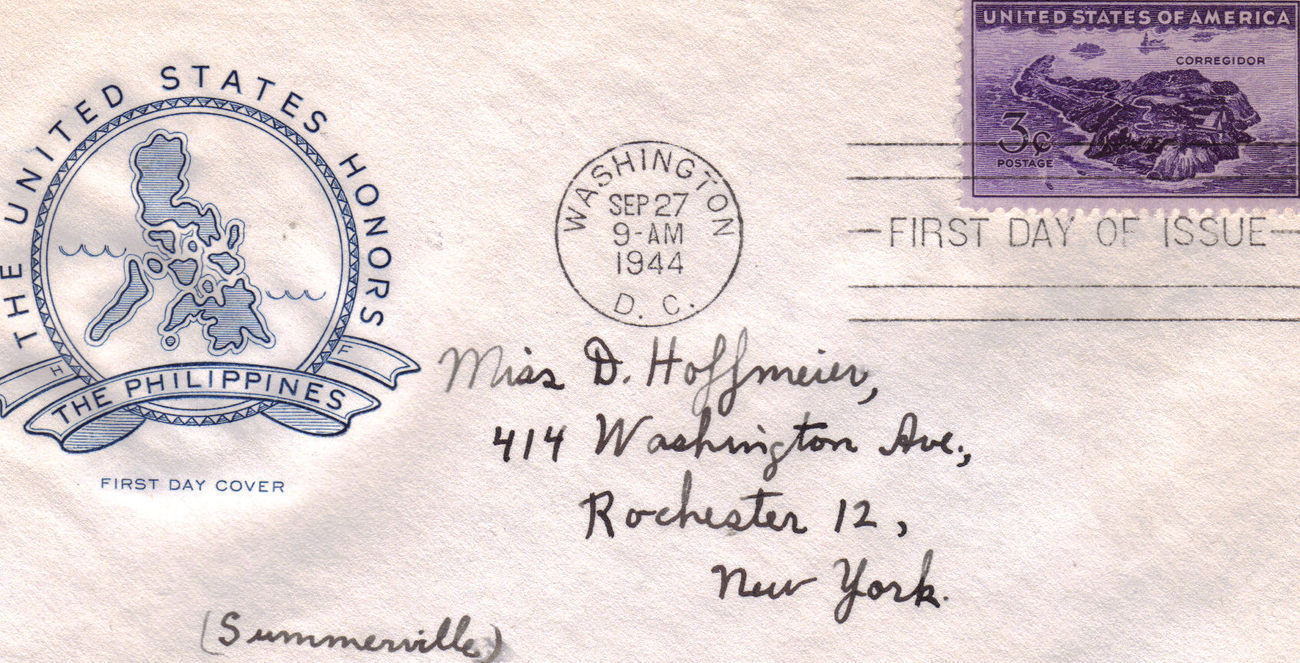 THE UNITED STATES HONORS
H F
THE PHILIPPINES
FIRST DAY COVER
WASHINGTON
SEP 27
9-AM
1944
D. C.
UNITED STATES OF AMERICA
CORREGIDOR
3¢
POSTAGE
FIRST DAY OF ISSUE
Miss D. Hoffmeier,
414 Washington Ave.,
Rochester 12,
New York.
(Summerville)